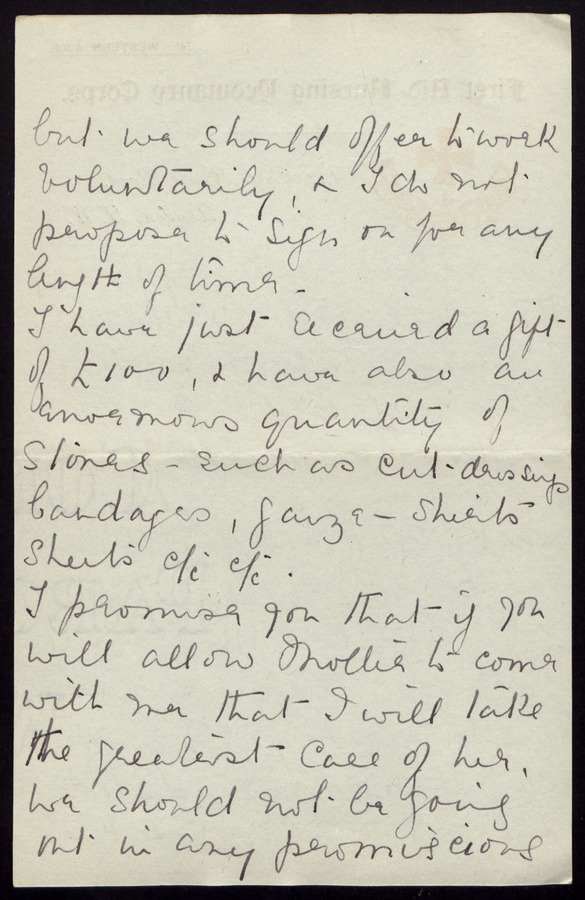 First Aid Nursing Yeomanry Corps.
but we should offer to work
voluntarily, & I do not
propose to sign on for any
length of time -
I have just received a gift
of £100, & have also an
enormous quantity of
stores - such as cut-dressings
bandages, gauze - shirts
sheets etc etc.
I promise you that if you
will allow Mollie to come
with me that I will take
the greatest care of her,
we should not be going
out in any promiscious